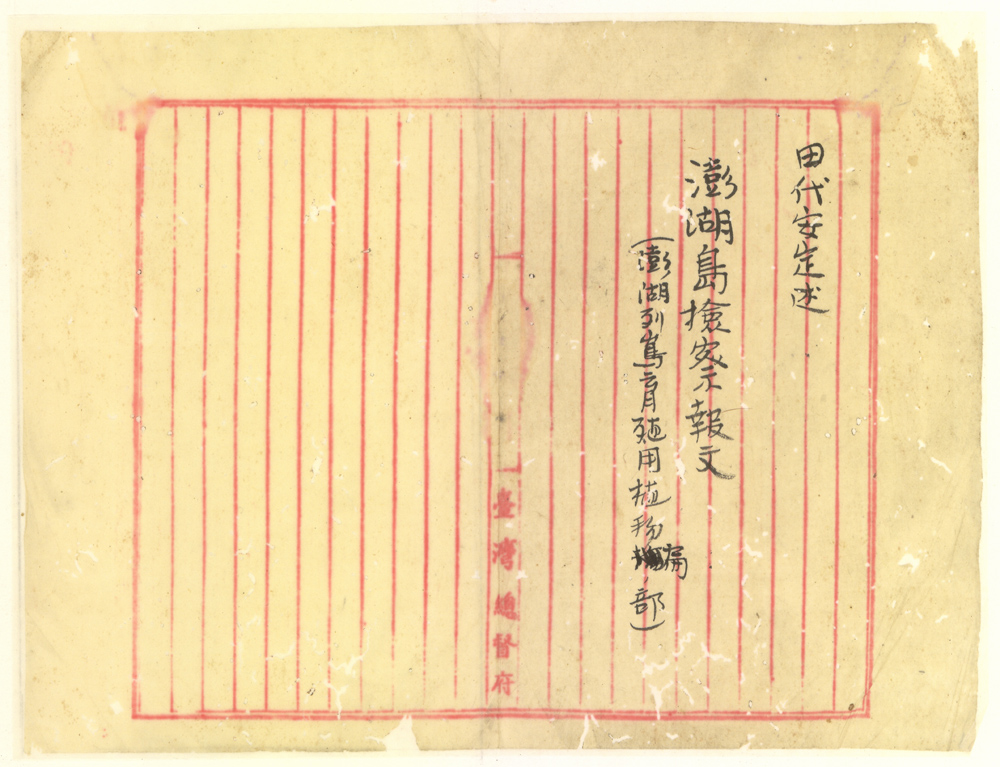 田代安定述
澎湖島検案示報文
(澎湖列島育殖用植物篇ノ部)
臺灣總督府